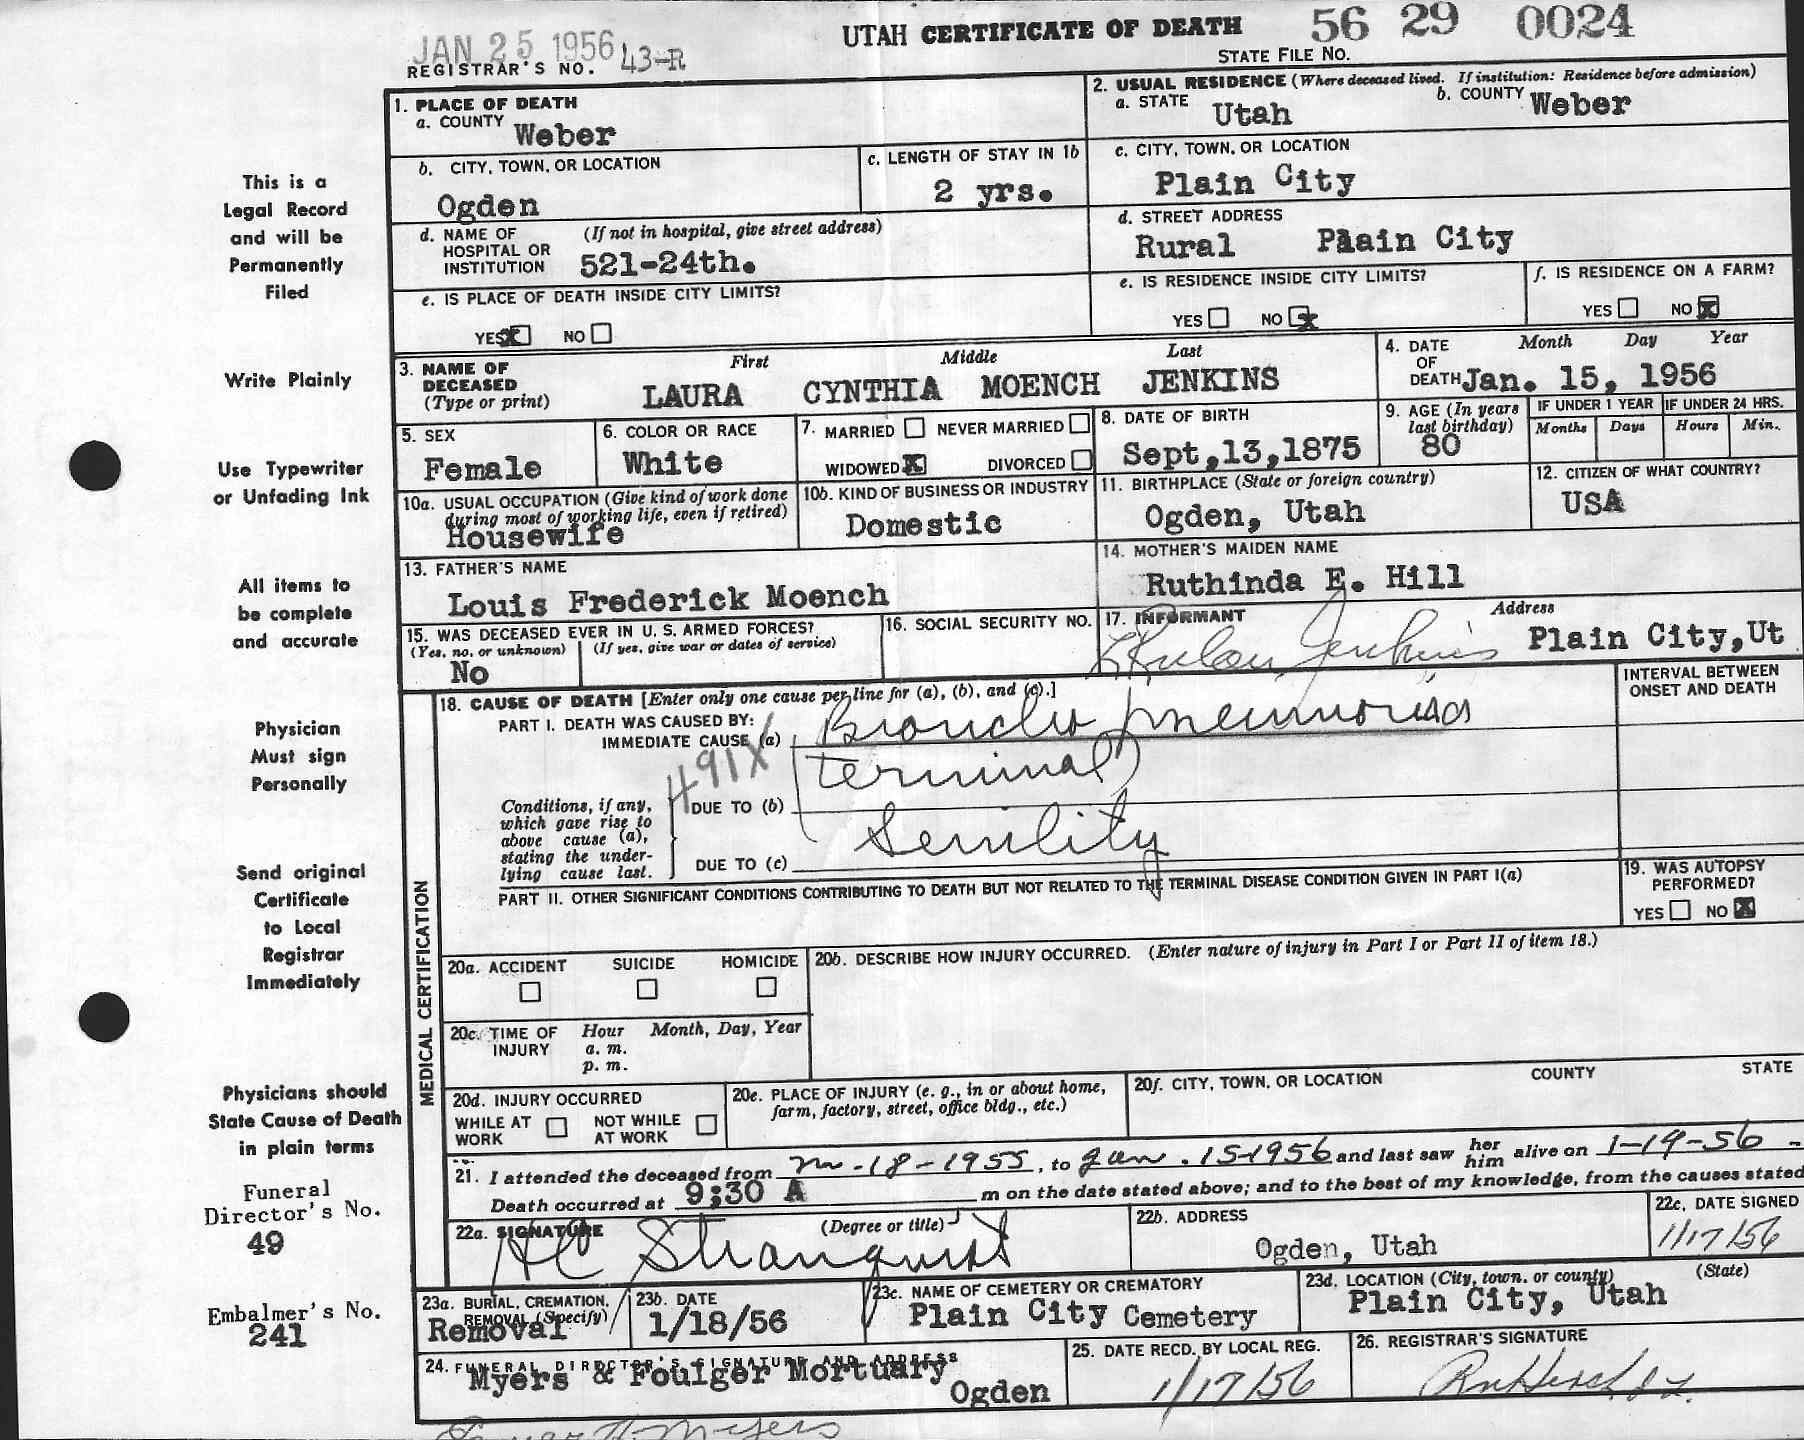 JAN 25 1956
UTAH CERTIFICATE OF DEATH 56 29 0024
REGISTRAR'S NO. 43-R
STATE FILE NO.
1. PLACE OF DEATH
a. COUNTY Weber
2. USUAL RESIDENCE (Where deceased lived. If institution: Residence before admission)
a. STATE Utah b. COUNTY Weber
b. CITY, TOWN, OR LOCATION
Ogden
c. LENGTH OF STAY IN 1b
2 yrs.
c. CITY, TOWN, OR LOCATION
Plain City
d. NAME OF HOSPITAL OR INSTITUTION (If not in hospital, give street address)
521-24th.
d. STREET ADDRESS
Rural Plain City
e. IS PLACE OF DEATH INSIDE CITY LIMITS?
YES X NO
e. IS RESIDENCE INSIDE CITY LIMITS?
YES NO X
f. IS RESIDENCE ON A FARM?
YES NO X
3. NAME OF DECEASED (Type or print)
First Middle Last
LAURA CYNTHIA MOENCH JENKINS
4. DATE OF DEATH Month Day Year
Jan. 15, 1956
5. SEX
Female
6. COLOR OR RACE
White
7. MARRIED NEVER MARRIED
WIDOWED X DIVORCED
8. DATE OF BIRTH
Sept,13,1875
9. AGE (In years last birthday)
80
IF UNDER 1 YEAR
Months Days
IF UNDER 24 HRS.
Hours Min.
10a. USUAL OCCUPATION (Give kind of work done during most of working life, even if retired)
Housewife
10b. KIND OF BUSINESS OR INDUSTRY
Domestic
11. BIRTHPLACE (State or foreign country)
Ogden, Utah
12. CITIZEN OF WHAT COUNTRY?
USA
13. FATHER'S NAME
Louis Frederick Moench
14. MOTHER'S MAIDEN NAME
Ruthinda E. Hill
15. WAS DECEASED EVER IN U. S. ARMED FORCES?
(Yes, no, or unknown) (If yes, give war or dates of service)
No
16. SOCIAL SECURITY NO.
17. INFORMANT Address
Rulon Jenkins Plain City,Ut
MEDICAL CERTIFICATION
18. CAUSE OF DEATH [Enter only one cause per line for (a), (b), and (c).]
INTERVAL BETWEEN ONSET AND DEATH
PART I. DEATH WAS CAUSED BY:
IMMEDIATE CAUSE (a) Broncho pneumonia
terminal)
491X
Conditions, if any, which gave rise to above cause (a), stating the underlying cause last.
DUE TO (b)
Senility
DUE TO (c)
PART II. OTHER SIGNIFICANT CONDITIONS CONTRIBUTING TO DEATH BUT NOT RELATED TO THE TERMINAL DISEASE CONDITION GIVEN IN PART I(a)
19. WAS AUTOPSY PERFORMED?
YES NO X
20a. ACCIDENT SUICIDE HOMICIDE
20b. DESCRIBE HOW INJURY OCCURRED. (Enter nature of injury in Part I or Part II of item 18.)
20c. TIME OF INJURY Hour Month, Day, Year
a. m.
p. m.
20d. INJURY OCCURRED
WHILE AT WORK NOT WHILE AT WORK
20e. PLACE OF INJURY (e. g., in or about home, farm, factory, street, office bldg., etc.)
20f. CITY, TOWN, OR LOCATION COUNTY STATE
21. I attended the deceased from -18-1955, to Jan. 15-1956 and last saw her him alive on 1-14-56
Death occurred at 9:30 A m on the date stated above; and to the best of my knowledge, from the causes stated
22a. SIGNATURE (Degree or title)
HC Stranquist
22b. ADDRESS
Ogden, Utah
22c. DATE SIGNED
1/17/56
23a. BURIAL, CREMATION, REMOVAL (Specify)
Removal
23b. DATE
1/18/56
23c. NAME OF CEMETERY OR CREMATORY
Plain City Cemetery
23d. LOCATION (City, town, or county) (State)
Plain City, Utah
24. FUNERAL DIRECTOR'S SIGNATURE AND ADDRESS
Myers & Foulger Mortuary
Ogden
25. DATE RECD. BY LOCAL REG.
1/17/56
26. REGISTRAR'S SIGNATURE
Myers
This is a
Legal Record
and will be
Permanently
Filed
Write Plainly
Use Typewriter
or Unfading Ink
All items to
be complete
and accurate
Physician
Must sign
Personally
Send original
Certificate
to Local
Registrar
Immediately
Physicians should
State Cause of Death
in plain terms
Funeral
Director's No.
49
Embalmer's No.
241